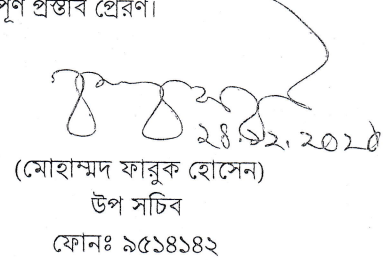 পূর্ণ প্রস্তাব প্রেরণ।
(মোহাম্মদ ফারুক হোসেন)
উপ সচিব
ফোনঃ ৯৫১৪১৪২